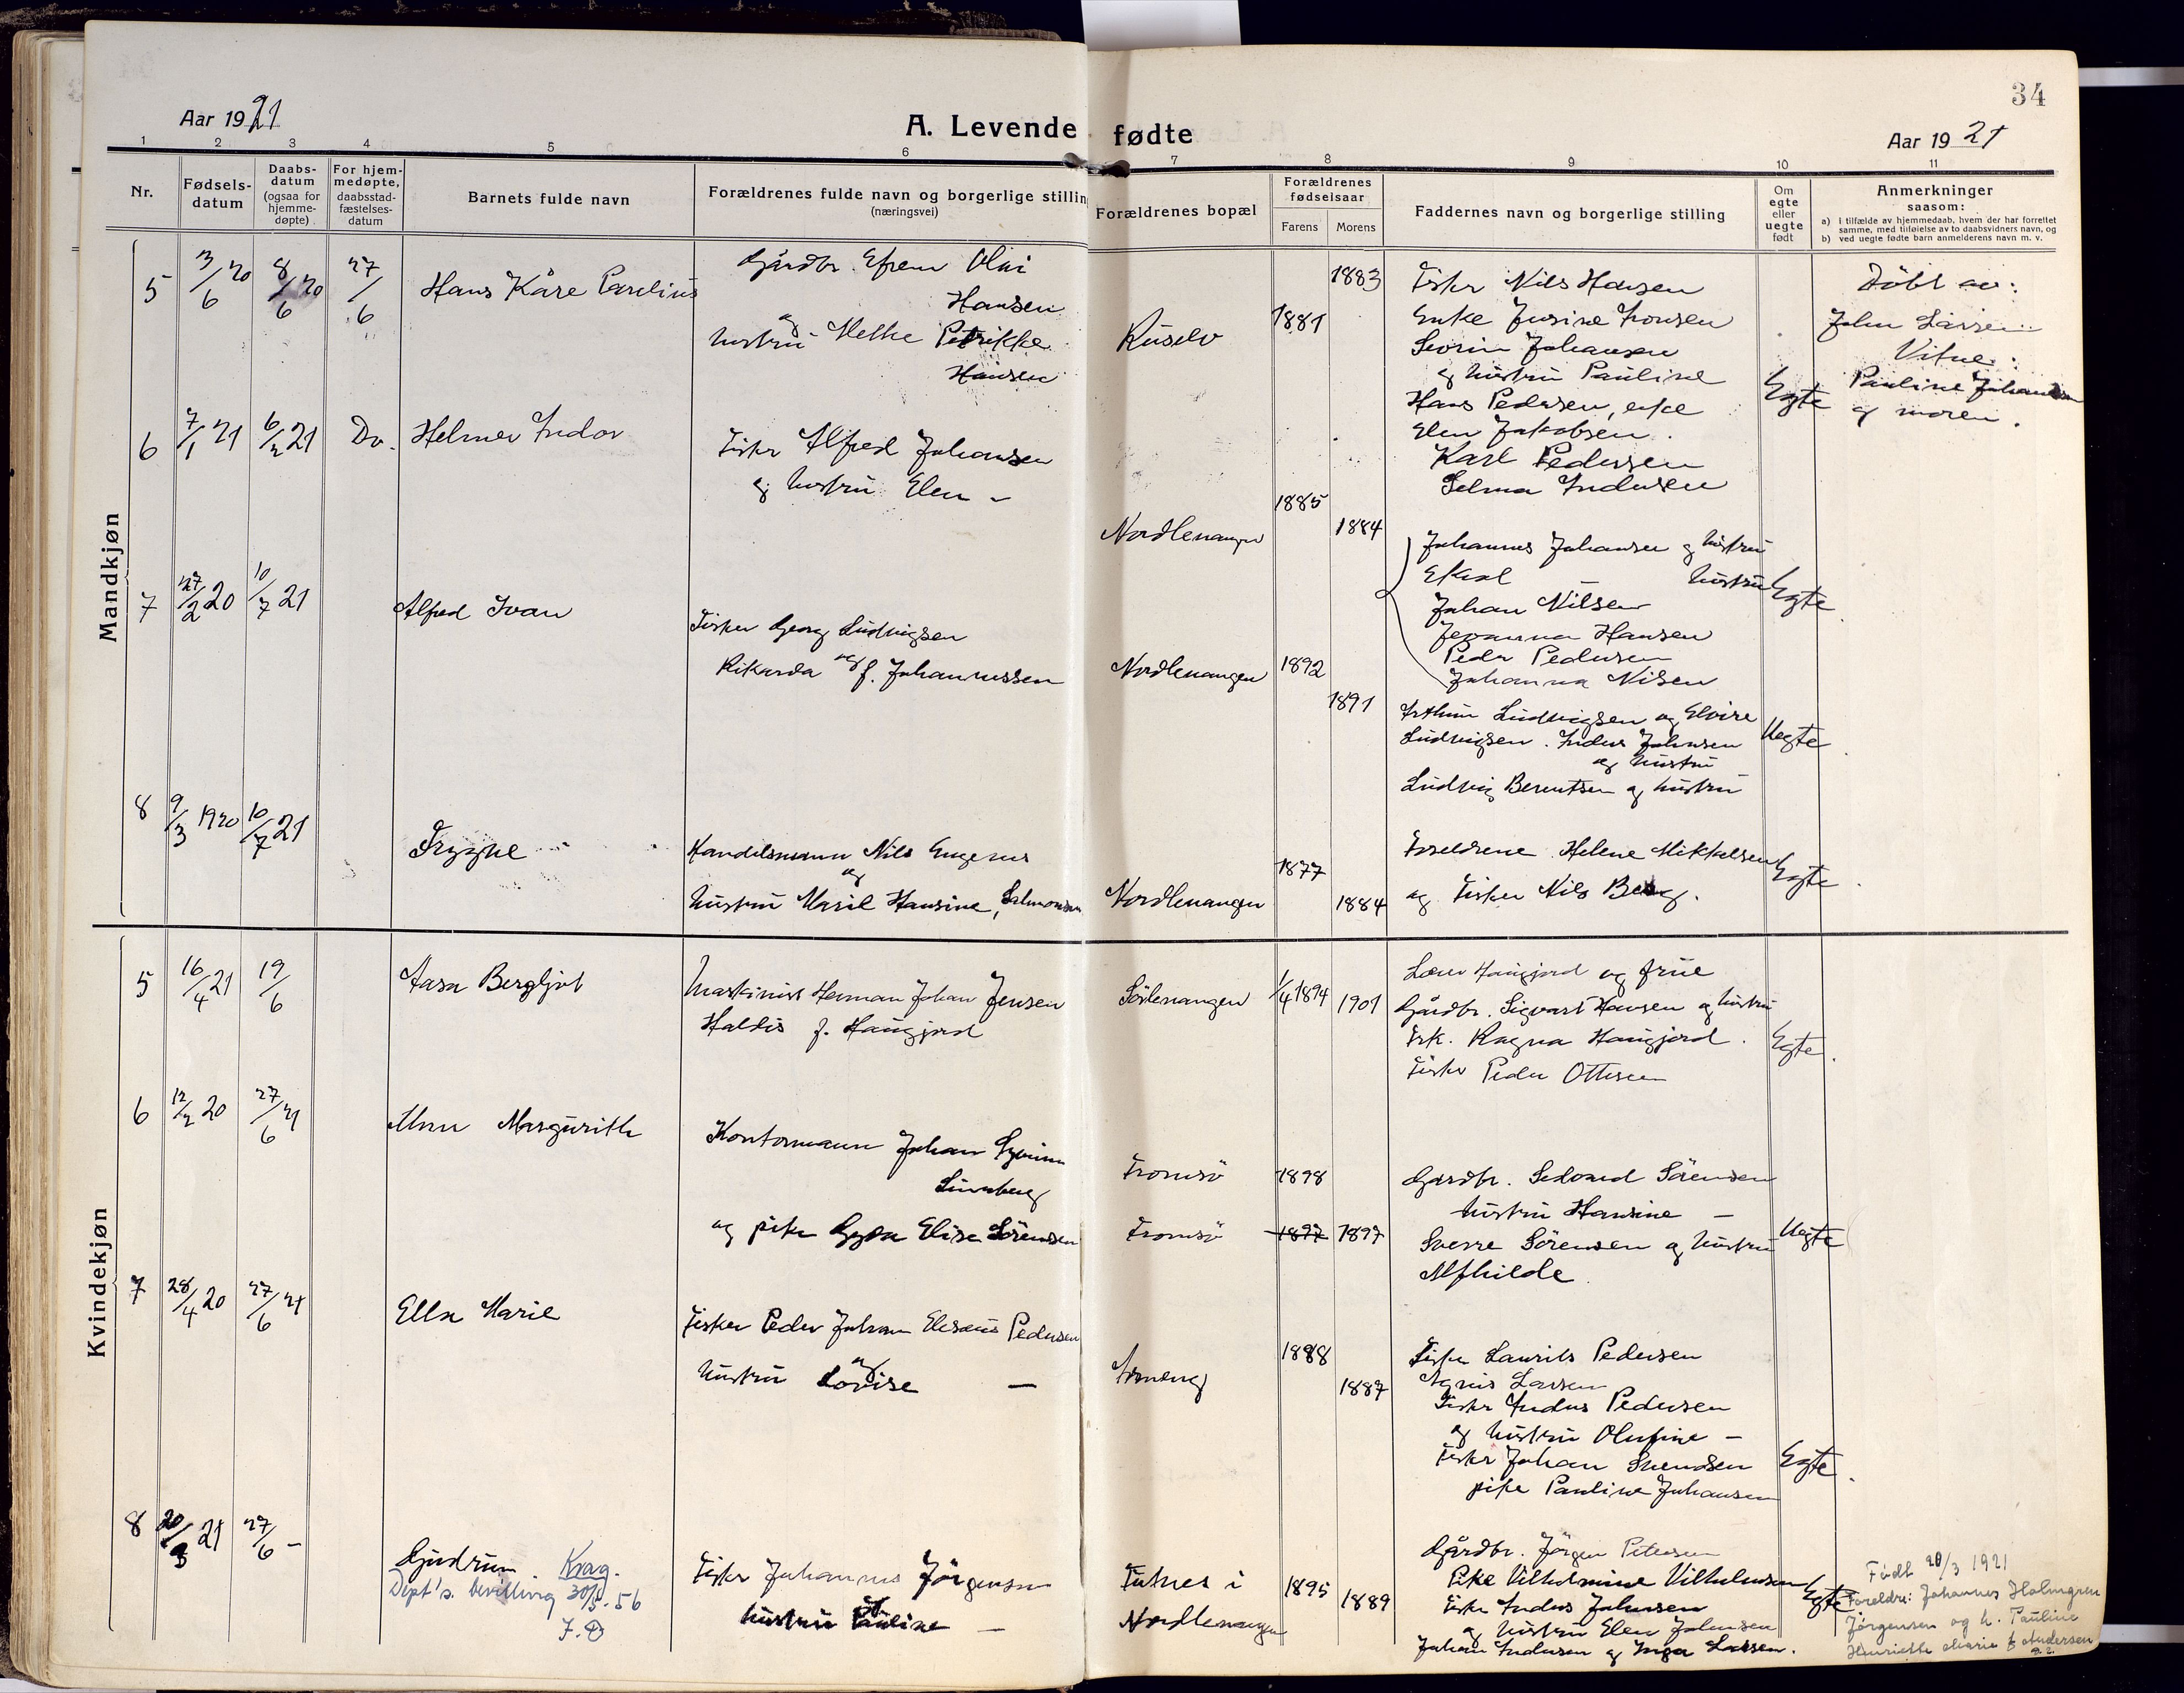 34
Aar 1921
A. Levende fødte
Aar 1921
1 2 3 4 5 6 7 8 9 10 11
Nr.
Fødsels-
datum
Daabs-
datum
(ogsaa for
hjemme-
døpte)
For hjem-
medøpte,
daabsstad-
fæstelses-
datum
Barnets fulde navn
Forældrenes fulde navn og borgerlige stilling
(næringsvei)
Forældrenes bopæl
Forældrenes
fødselsaar
Farens
Morens
Faddernes navn og borgerlige stilling
Om
egte
eller
uegte
født
Anmerkninger
saasom:
a) I tilfælde av hjemmedaab, hvem der har forrettet
samme, med tilføielse av to daabsvidners navn, og
b) ved uegte fødte barn anmelderens navn m. v.
Mandkjøn
5
3/6 20
8/6 20
27/6
Hans Kåre Parelius
Gårdbr. Efrem Olai
Hansen
og
hustru Methe Petrikke
Hansen
Rüselv
1881
1883
Fisker Nils Hansen
Enke Jensine Hansen
Sevrin Johansen
og hustru Pauline
Hans Pedersen, enke
Elen Jakobsen.
Egte
Döbt av:
John Larsen
Vitne:
Pauline Johansen
og moren.
6
7/1 21
6/2 21
Do.
Helmer Indor
Fisker Alfred Johansen
og hustru Elen -
Nordlenangen
1885
1884
Karl Pedersen
Selma Andersen
Johannes Johansen og hustru
Johan Nilsen
Hansen
Peder Pedersen
Johanna Nilsen
Egte
7
27/2 20
10/7 21
Alfred Ivan
Fisker Georg Ludvigsen
og
Rikarda f. Johannessen
Nordlenangen
1892
1891
Arthur Ludvigsen og Elvire
Ludvigsen. Anders Johansen
og hustru
Ludvig Berentsen og hustru
Uegte
8
9/3 1920
10/7 21
Trygve
Handelsmann Nils
og
hustru Marie Hansine, Salmonsen
Nordlenangen
1877
1884
Forældrene. Helene Mikkelsen
og Fisker Nils Berg.
Egte
Kvindekjøn
5
16/4 21
19/6
Aasa Bergljot
Maskinist Herman Johan Jensen
Haldis f. Haugjord
Sörlenangen
1/4 1894
1901
Lærer Haugjord og frue
Gårdbr. Sigvart Hansen og hustru
Frk. Ragna Haugjord.
Fisker Peder Ottesen
Egte.
6
12/2 20
27/6 21
Margurith
Kontormann Johan
og pike Gyda Elise Sörensen
Tromsö
Tromsö
1898
1897 1897
Gardbr. Sedvard Sörensen
hustru Hansine -
Sverre Sörensen og hustru
Alfhilde.
Uegte
7
28/4 20
27/6 21
Ella Marie
Fisker Peder Johan Elesæus Pedersen
og
hustru Lovise -
1888
1887
Fisker Laurits Pedersen
Agnis Larsen
Fisker Anders Pedersen
og hustru Olufine -
Fisker Johan Svendsen
pike Pauline Johansen
Egte.
8
20/3 21
27/6 -
Gudrun. Krag.
Dept's. bevilling 30/5. 56
Fisker Johannes Jörgensen
hustru Pauline -
Futnes i
Nordlenangen
1895
1889
Gårdbr. Jörgen Petersen
Pike Vilhelmine Vilhelmsen
Fisker Anders Johnsen
og hustru Elen Johnsen
Johan Andersen og Inga Larsen.
Egte
Født 20/3 1921
Foreldre: Johannes Holmgren
Jørgensen og h. Pauline
Henriette Marie f. Andersen